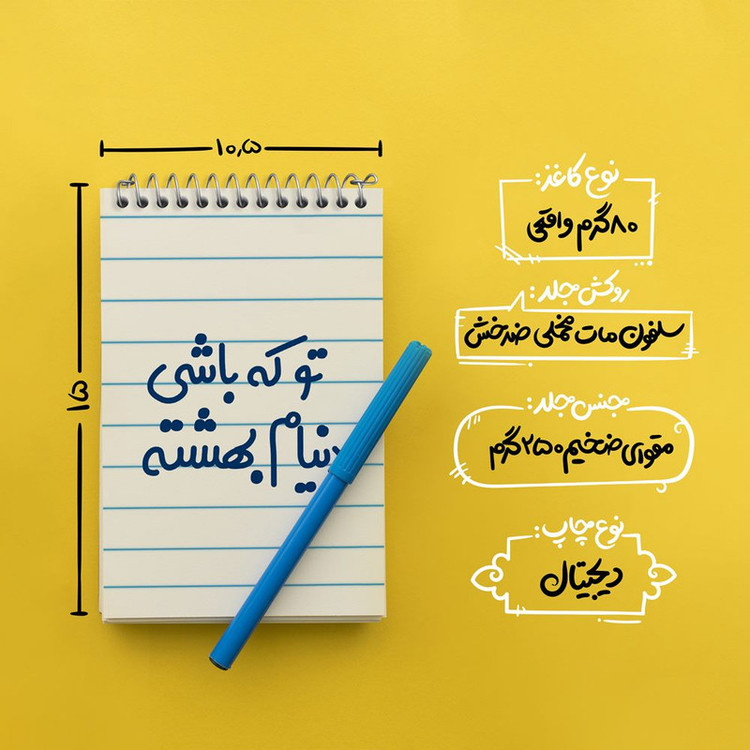 ۱۰,۵
۱۵
تو که باشی
دنیام بهشته
نوع کاغذ:
۸۰ گرم واقعی
روکش جلد:
سلفون مات مخملی ضدخش
جنس جلد:
مقوای ضخیم ۲۵۰ گرم
نوع چاپ:
دیجیتال